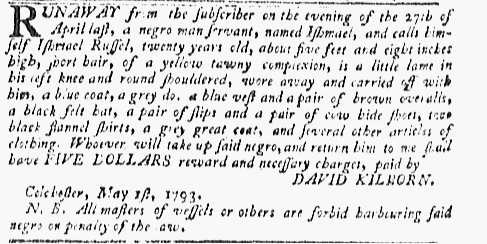 RUNAWAY from the subscriber on the evening of the 27th of
April last, a negro man servant, named Ishmael, and calls him-
self Ishmael Russel, twenty years old, about five feet and eight inches
high, short hair, of a yellow tawny complexion, is a little lame in
his left knee and round shouldered, wore away and carried off with
him, a blue coat, a grey do. a blue vest and a pair of brown overalls,
a black felt hat, a pair of slips and a pair of cow hide shoes, two
black flannel shirts, a grey great coat, and several other articles of
clothing. Whoever will take up said negro, and return him to me shall
have FIVE DOLLARS reward and necessary charges, paid by
DAVID KILBORN.
Colchester, May 1st, 1793.
N. B. All masters of vessels or others are forbid harbouring said
negro on penalty of the law.